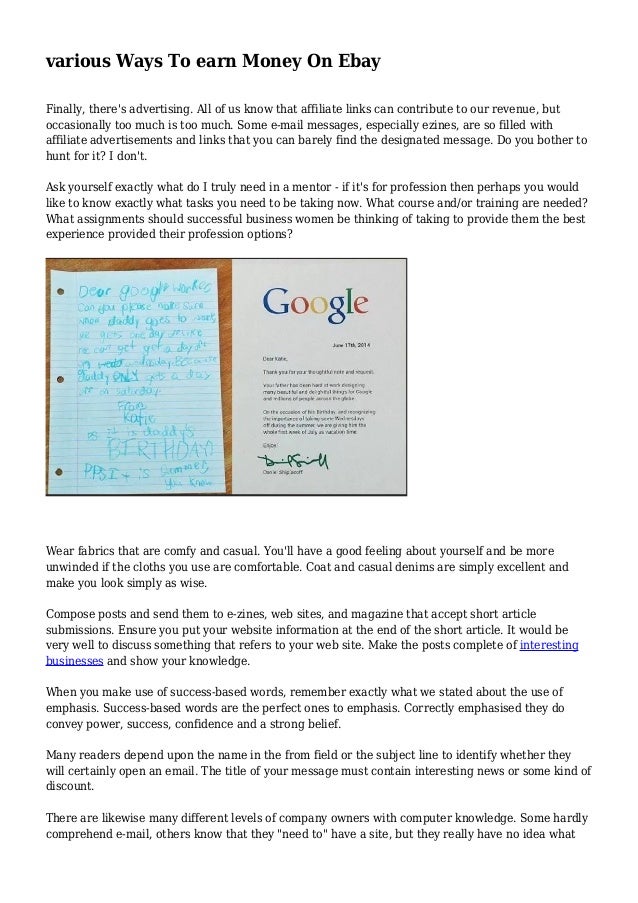 various Ways To earn Money On Ebay
Finally, there's advertising. All of us know that affiliate links can contribute to our revenue, but
occasionally too much is too much. Some e-mail messages, especially ezines, are so filled with
affiliate advertisements and links that you can barely find the designated message. Do you bother to
hunt for it? I don't.
Ask yourself exactly what do I truly need in a mentor - if it's for profession then perhaps you would
like to know exactly what tasks you need to be taking now. What course and/or training are needed?
What assignments should successful business women be thinking of taking to provide them the best
experience provided their profession options?
Dear google worker
Can you please make sure
when daddy goes to work
he gets one day
he can get a day
Because
daddy ONLY gets a day
off on saturday
From
Katie
P.S. it is daddy's
BIRTHDAY
P.P.S It is summer,
you know
Google
June 17th, 2014
Dear Katie,
Thank you for your thoughtful note and request.
Your father has been hard at work designing
many beautiful and delightful things for Google
and millions of people across the globe.
On the occasion of his Birthday, and recognizing
the importance of taking some Wednesdays
off during the summer, we are giving him the
whole first week of July as vacation time.
Enjoy!
Daniel Shiplacoff
Wear fabrics that are comfy and casual. You'll have a good feeling about yourself and be more
unwinded if the cloths you use are comfortable. Coat and casual denims are simply excellent and
make you look simply as wise.
Compose posts and send them to e-zines, web sites, and magazine that accept short article
submissions. Ensure you put your website information at the end of the short article. It would be
very well to discuss something that refers to your web site. Make the posts complete of interesting
businesses and show your knowledge.
When you make use of success-based words, remember exactly what we stated about the use of
emphasis. Success-based words are the perfect ones to emphasis. Correctly emphasised they do
convey power, success, confidence and a strong belief.
Many readers depend upon the name in the from field or the subject line to identify whether they
will certainly open an email. The title of your message must contain interesting news or some kind of
discount.
There are likewise many different levels of company owners with computer knowledge. Some hardly
comprehend e-mail, others know that they "need to" have a site, but they really have no idea what